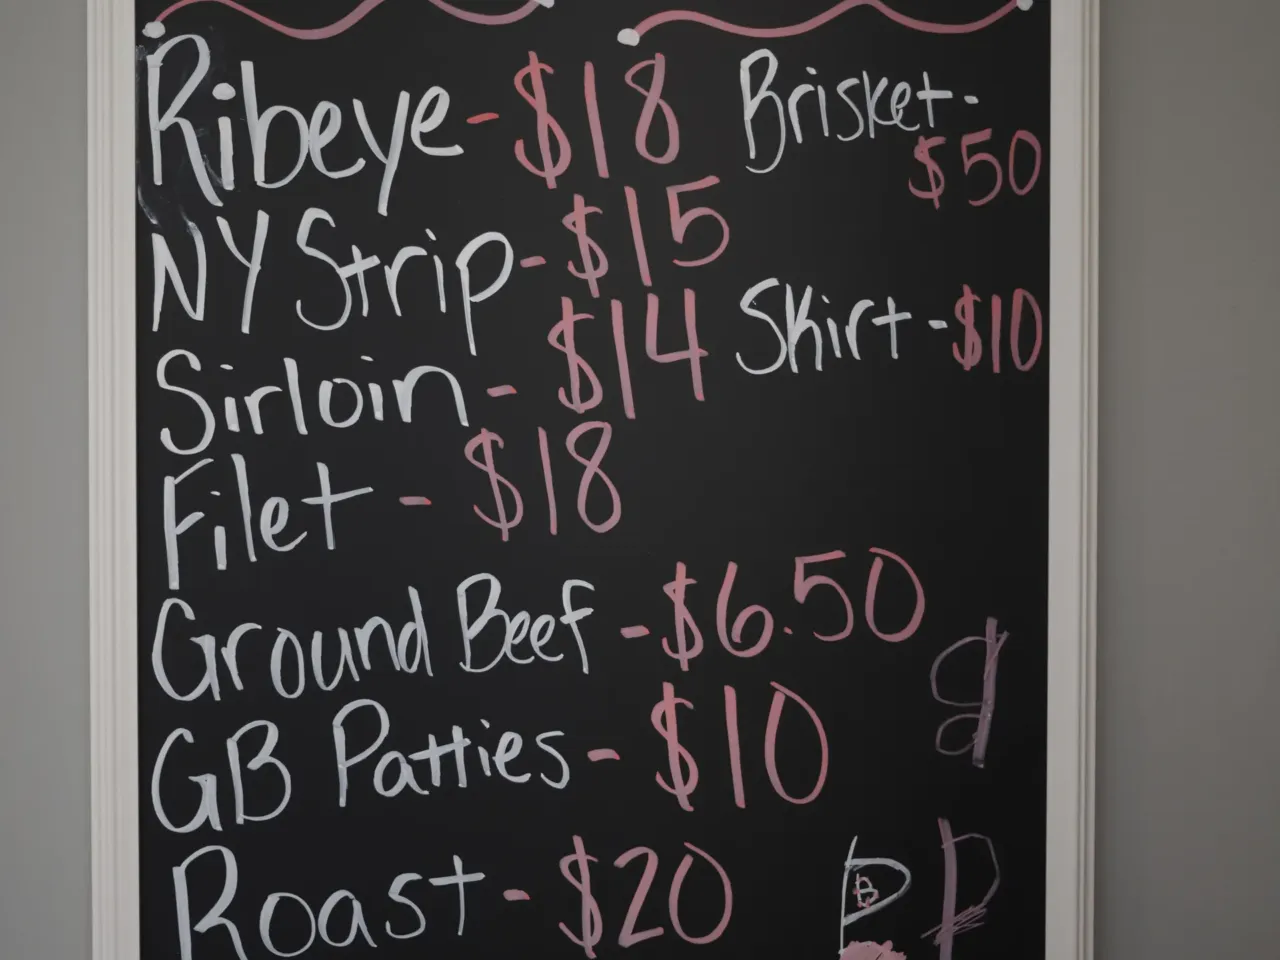 Ribeye - $18
NY Strip - $15
Sirloin - $14
Filet - $18
Ground Beef - $6.50
GB Patties - $10
Roast - $20
Brisket -
$50
Skirt - $10
B
P